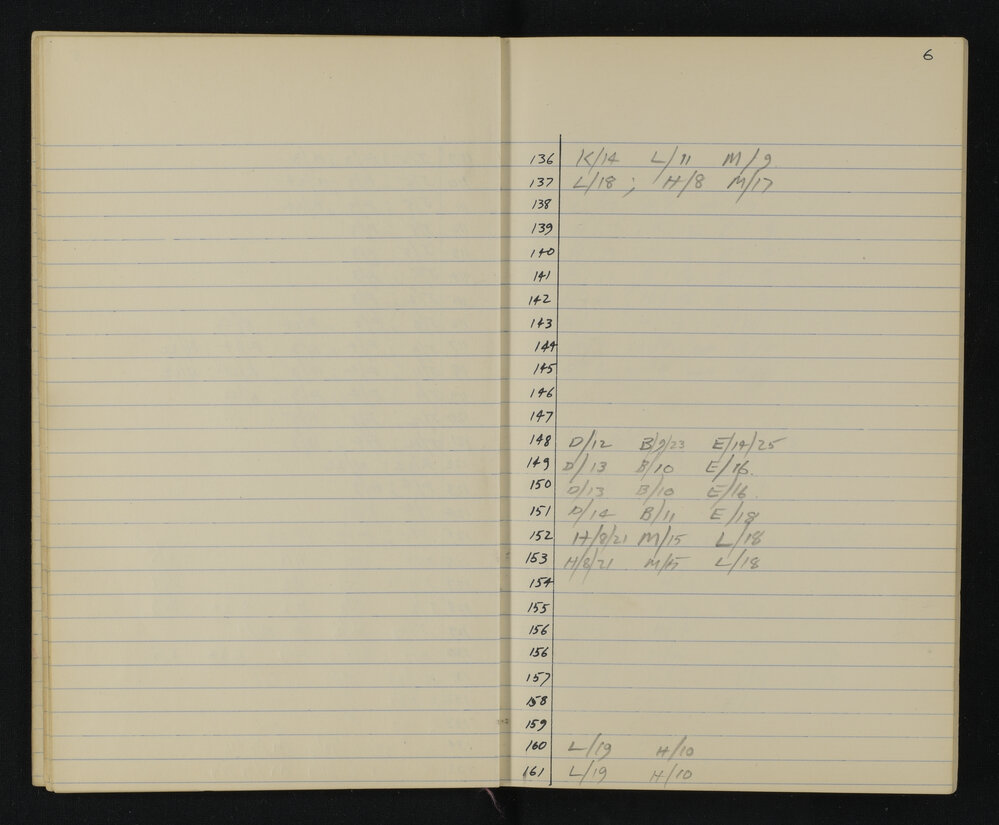 6
136 K/14 L/11 M/9
137 L/18 ; H/8 M/17
138
139
140
141
142
143
144
145
146
147
148 D/12 B/9/23 E/14/25
149 D/13 B/10 E/16
150 D/13 B/10 E/16
151 D/14 B/11 E/18
152 H/8/21 M/15 L/18
153 H/8/21 M/15 L/18
154
155
156
156
157
158
159
160 L/19 H/10
161 L/19 H/10